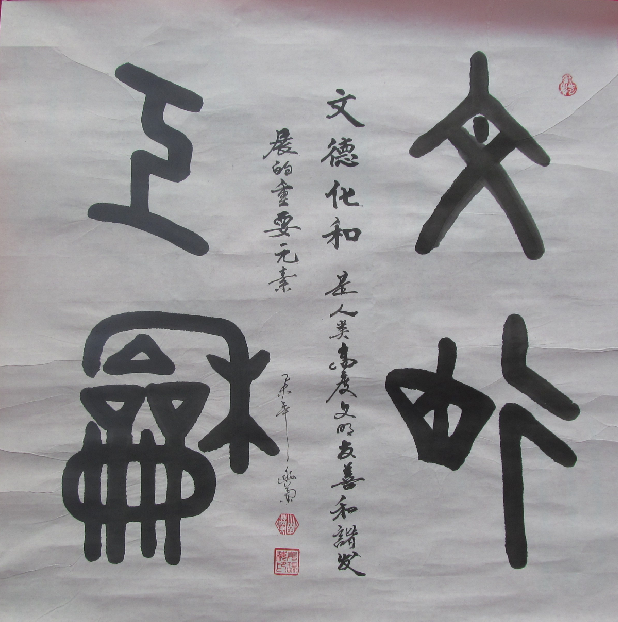 文德
文德化和 是人类高度文明友善和諧发
展的重要元素
化龢